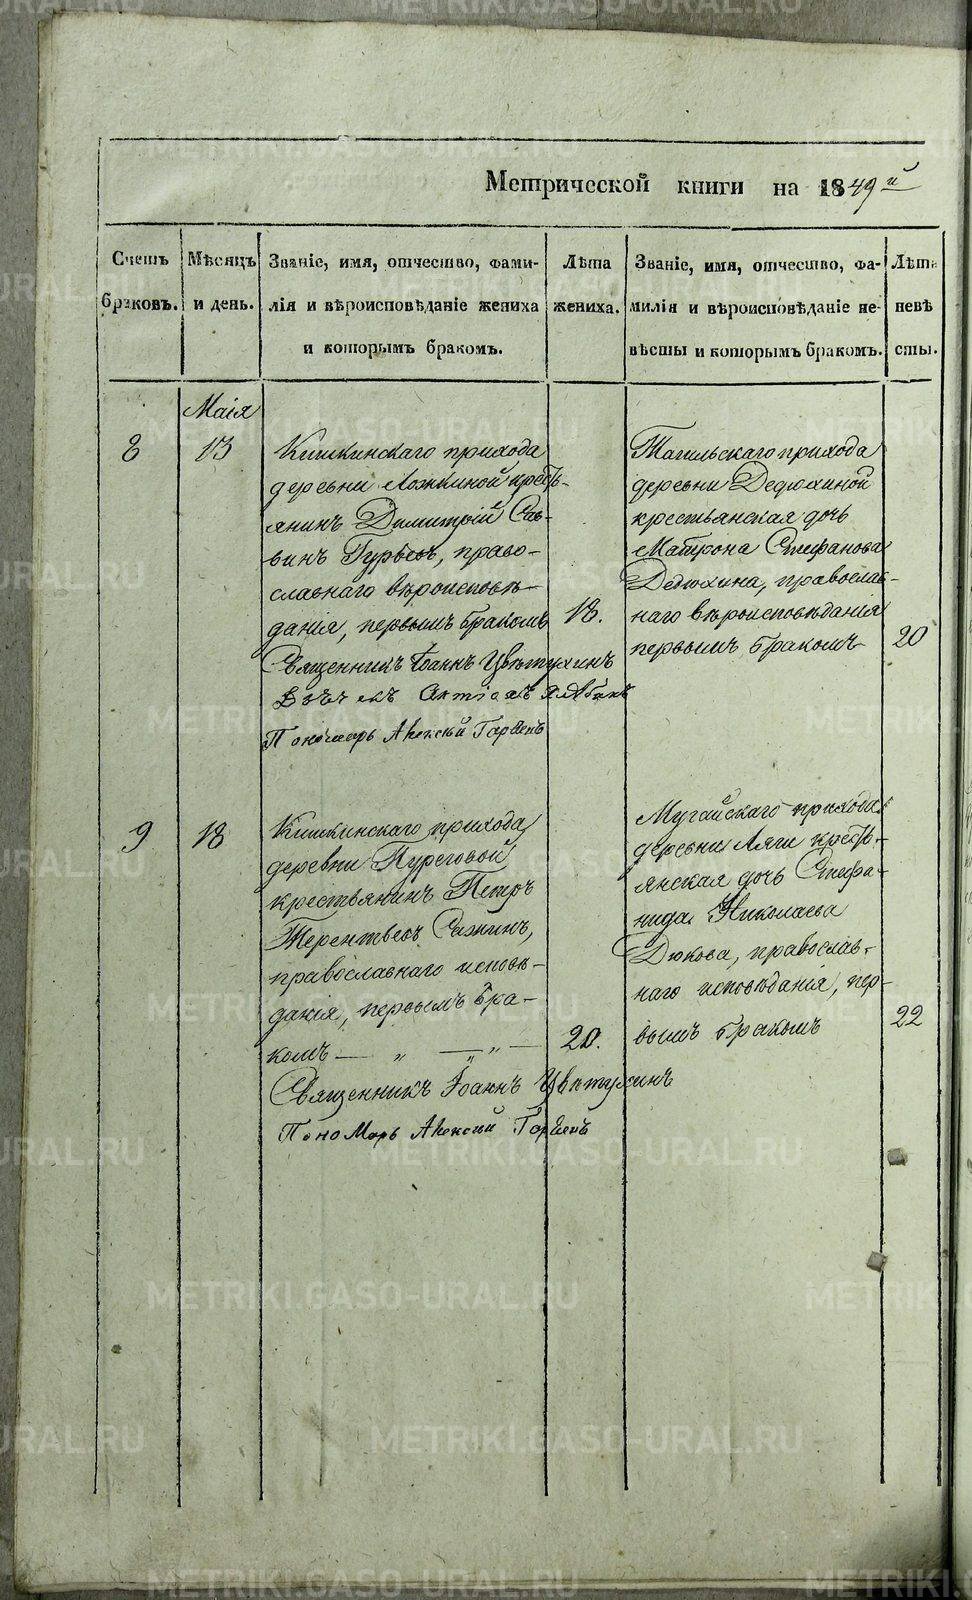 Метрической книги на 1849 й
Счетъ браковъ.
Мѣсяцъ и день.
Званіе, имя, отчество, фами-
лія и вѣроисповѣданіе жениха
и которымъ бракомъ.
Лѣта
жениха.
Званіе, имя, отчество, фа-
милія и вѣроисповѣданіе не-
вѣсты и которымъ бракомъ.
Лѣта
невѣ
сты.
Маія
8
13
Кишкинскаго прихода
деревни Ложкиной крестъ-
янинъ Димитрій Сав-
винъ Гурьевъ, право-
славнаго вѣроисповѣ-
данія, первымъ бракомъ
18.
Священникъ Іоаннъ Цвѣтухинъ
Пономарь Алексій
Тагильскаго прихода
деревни Дедюхиной
крестьянская дочь
Матрона Стефанова
Дедюхина, православ-
наго вѣроисповѣданія
первымъ бракомъ
20
9
18
Кишкинскаго прихода
деревни Пуреговой
крестьянинъ Петръ
Терентьевъ Сажинъ,
православнаго исповѣ-
данія, первымъ бра-
комъ — „ — „ —
20.
Священникъ Іоаннъ Цвѣтухинъ
Пономарь Алексій
Мугайскаго прихода
деревни Ляги кресть-
янская дочь Стефа-
нида Николаева
Дюкова, православ-
наго исповѣданія, пер-
вымъ бракомъ
22
METRIKI.GASO-URAL.RU